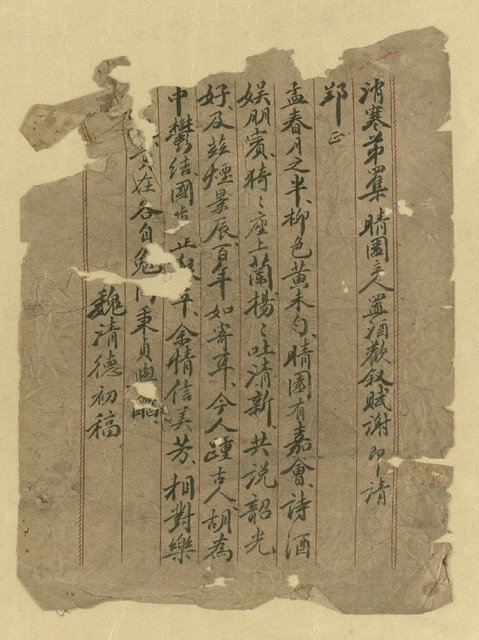 消寒第四集晴園主人置酒歡叙賦謝即請
郢正
孟春月之半柳色黃未勻晴園有嘉會詩酒
娛朋賓猗〻座上蘭揚〻吐清新共說韶光
好及茲煙景辰百年如寄耳今人踵古人胡為
中鬱結國 平余情信美芳相對樂
在各自免 秉貞
魏清德初稿